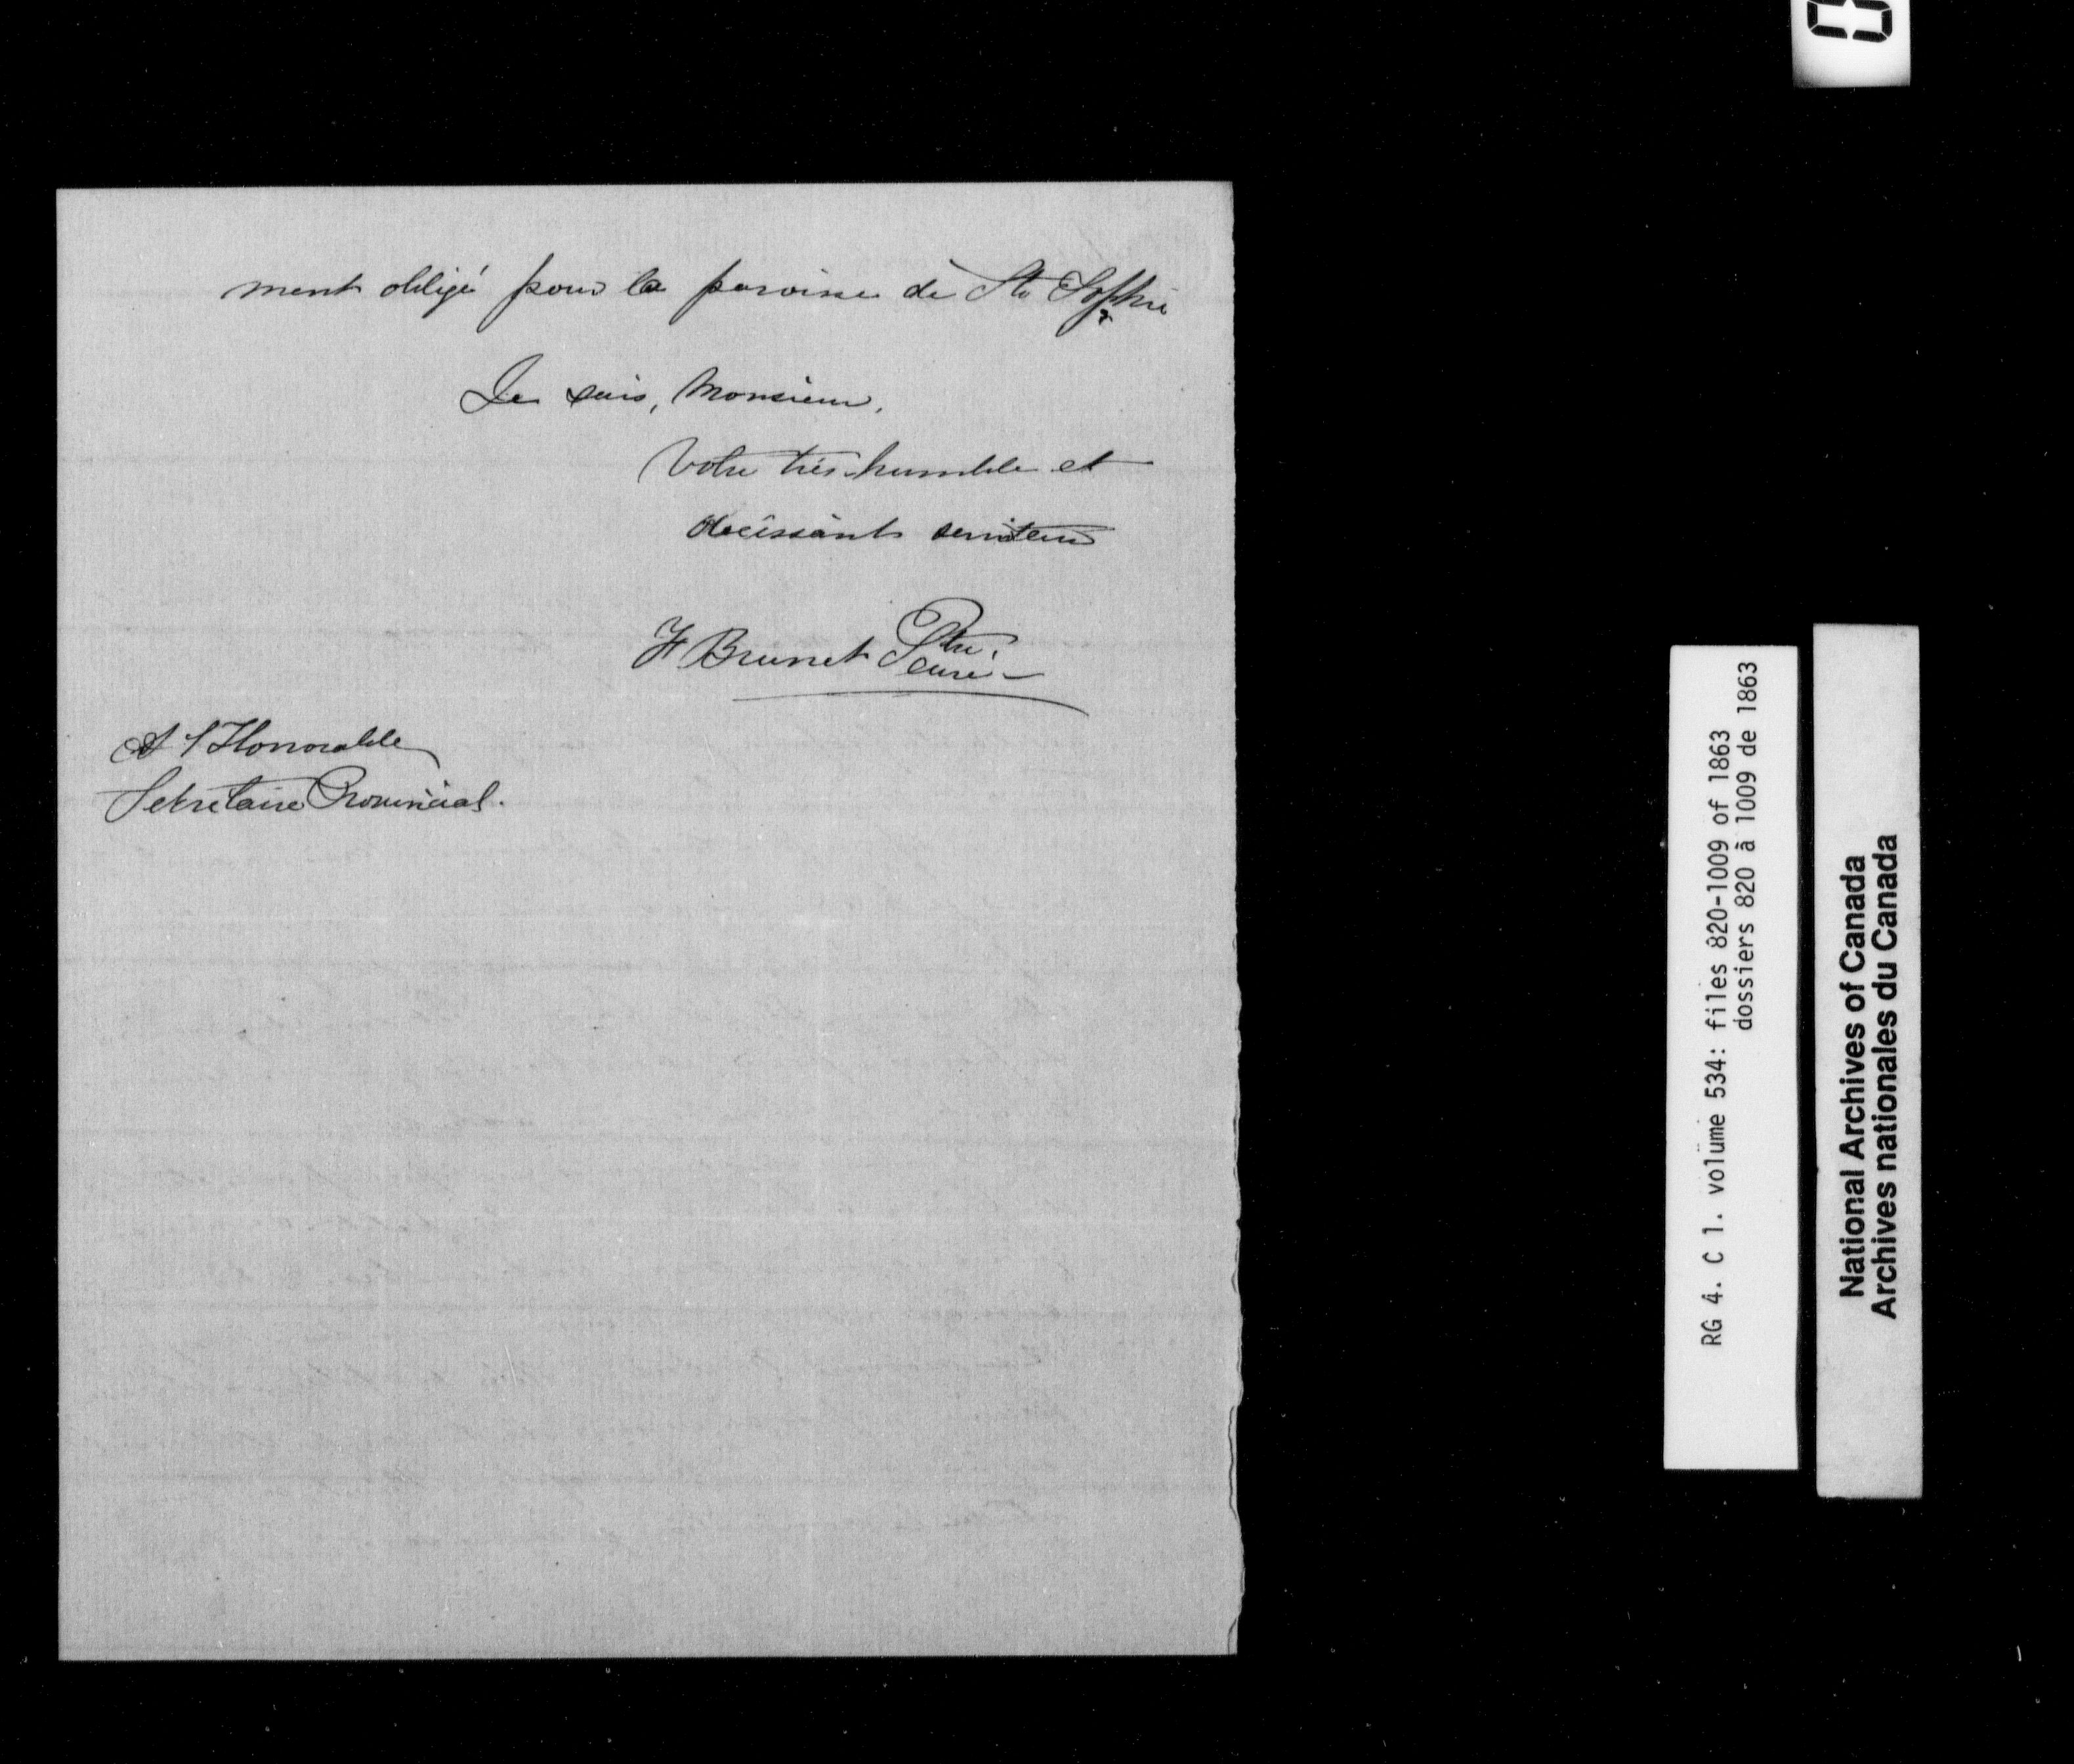 ment obligé pour la paroisse de Ste Sophie
Je suis, Monsieur,
Votre très humble et
obéissant serviteur
F Brunet Ptre.
curé.
A l'Honorable
Secrétaire Provincial.
RG 4. C 1. volume 534: files 820-1009 of 1863
dossiers 820 à 1009 de 1863
National Archives of Canada
Archives nationales du Canada